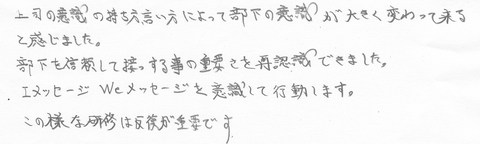 上司の意識の持ち方言い方によって部下の意識が大きく変わって来る
と感じました。
部下を信頼して接っする事の重要さを再認識できました。
Iメッセージ Weメッセージを意識して行動します。
この様な研修は反復が重要です